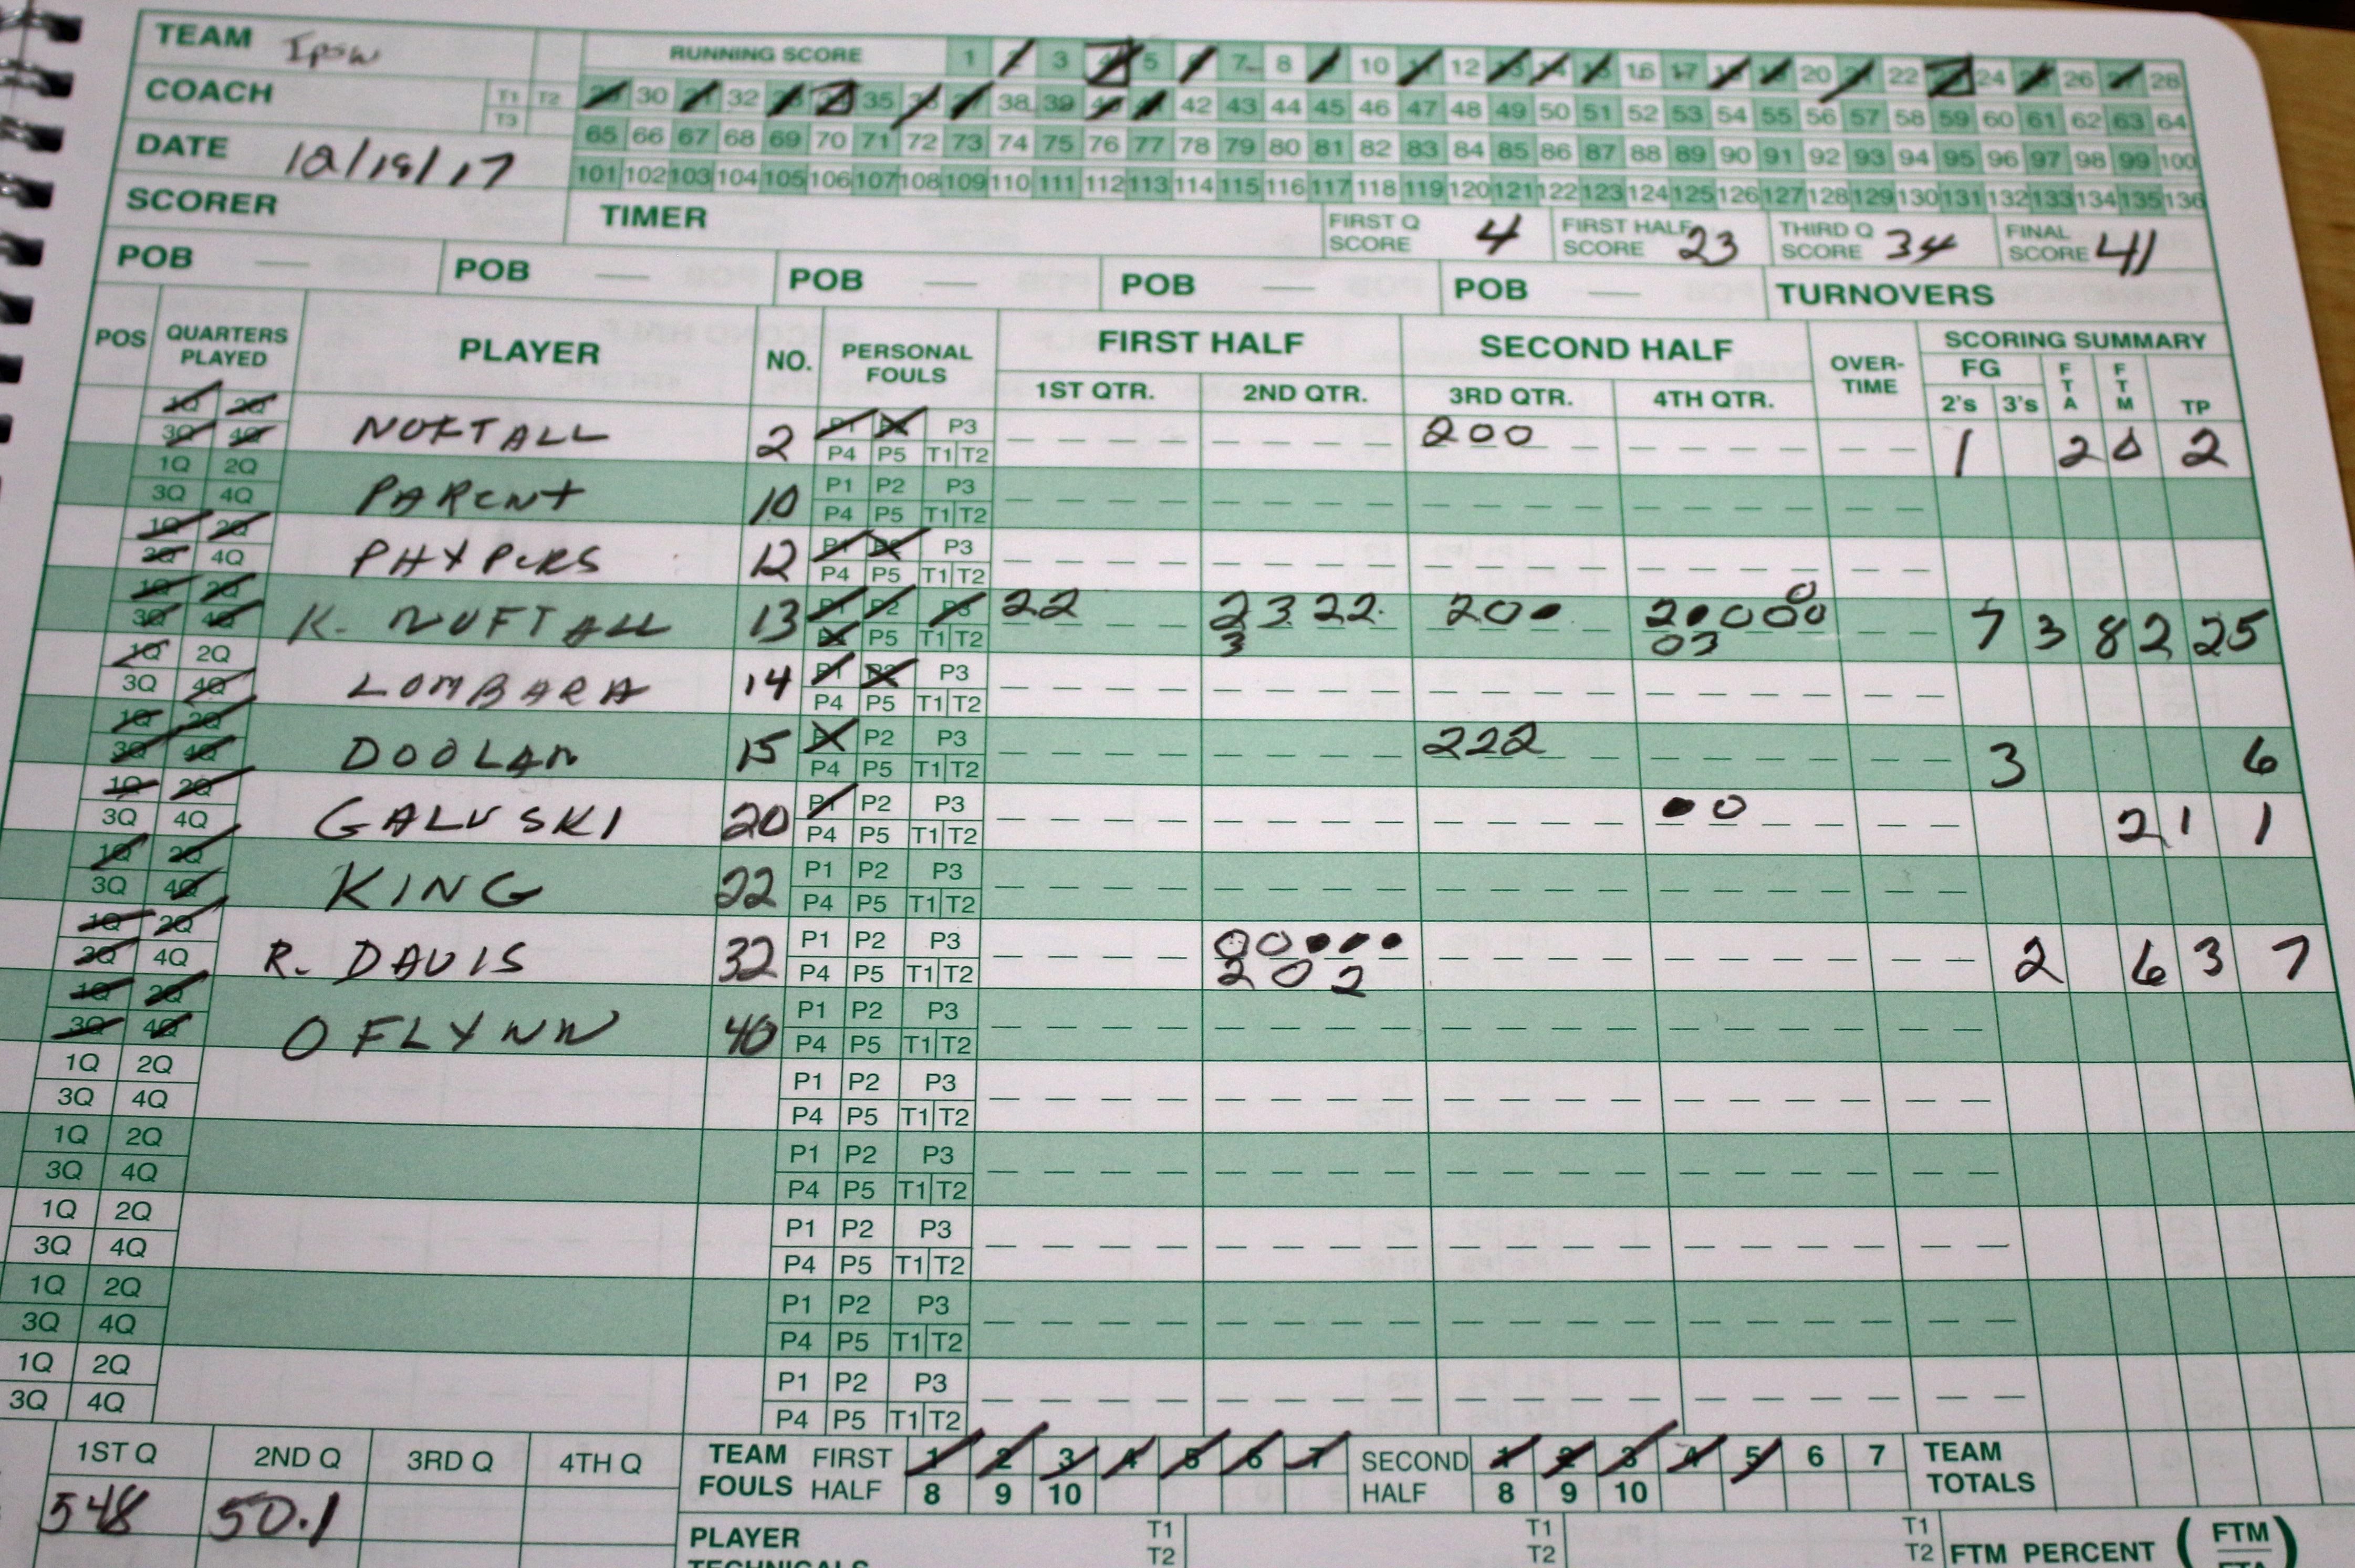 TEAM Ipsw RUNNING SCORE 1 2 3 4 5 6 7 8 9 10 11 12 13 14 15 16 17 18 19 20 21 22 23 24 25 26 27 28
COACH T1 T2 T3 29 30 31 32 33 34 35 36 37 38 39 40 41 42 43 44 45 46 47 48 49 50 51 52 53 54 55 56 57 58 59 60 61 62 63 64
65 66 67 68 69 70 71 72 73 74 75 76 77 78 79 80 81 82 83 84 85 86 87 88 89 90 91 92 93 94 95 96 97 98 99 100
DATE 12/18/17
101 102 103 104 105 106 107 108 109 110 111 112 113 114 115 116 117 118 119 120 121 122 123 124 125 126 127 128 129 130 131 132 133 134 135 136
SCORER TIMER FIRST Q SCORE 4 FIRST HALF SCORE 23 THIRD Q SCORE 34 FINAL SCORE 41
POB — POB — POB — POB — POB — TURNOVERS
POS QUARTERS PLAYED PLAYER NO. PERSONAL FOULS FIRST HALF SECOND HALF OVER-TIME SCORING SUMMARY
1ST QTR. 2ND QTR. 3RD QTR. 4TH QTR. FG 2's 3's FTA FTM TP
1Q 2Q 3Q 4Q NUFTALL 2 P1 P2 P3 P4 P5 T1 T2 200 1 2 0 2
1Q 2Q 3Q 4Q PARENT 10 P1 P2 P3 P4 P5 T1 T2
1Q 2Q 3Q 4Q PHYPERS 12 P1 P2 P3 P4 P5 T1 T2
1Q 2Q 3Q 4Q K. NUFTALL 13 P1 P2 P3 P4 P5 T1 T2 22 2322 3 20• 2•0000 03 7 3 8 2 25
1Q 2Q 3Q 4Q LOMBARA 14 P1 P2 P3 P4 P5 T1 T2
1Q 2Q 3Q 4Q DOOLAN 15 P1 P2 P3 P4 P5 T1 T2 222 3 6
1Q 2Q 3Q 4Q GALUSKI 20 P1 P2 P3 P4 P5 T1 T2 •0 2 1 1
1Q 2Q 3Q 4Q KING 22 P1 P2 P3 P4 P5 T1 T2
1Q 2Q 3Q 4Q R. DAVIS 32 P1 P2 P3 P4 P5 T1 T2 00••• 202 2 6 3 7
1Q 2Q 3Q 4Q O FLYNN 40 P1 P2 P3 P4 P5 T1 T2
1Q 2Q 3Q 4Q P1 P2 P3 P4 P5 T1 T2
1Q 2Q 3Q 4Q P1 P2 P3 P4 P5 T1 T2
1Q 2Q 3Q 4Q P1 P2 P3 P4 P5 T1 T2
1Q 2Q 3Q 4Q P1 P2 P3 P4 P5 T1 T2
1Q 2Q 3Q 4Q P1 P2 P3 P4 P5 T1 T2
1ST Q 2ND Q 3RD Q 4TH Q TEAM FOULS FIRST HALF 1 2 3 4 5 6 7 8 9 10 SECOND HALF 1 2 3 4 5 6 7 8 9 10 TEAM TOTALS
548 50.1
PLAYER TECHNICALS T1 T2 T1 T2 T1 T2 FTM PERCENT (FTM FTA)